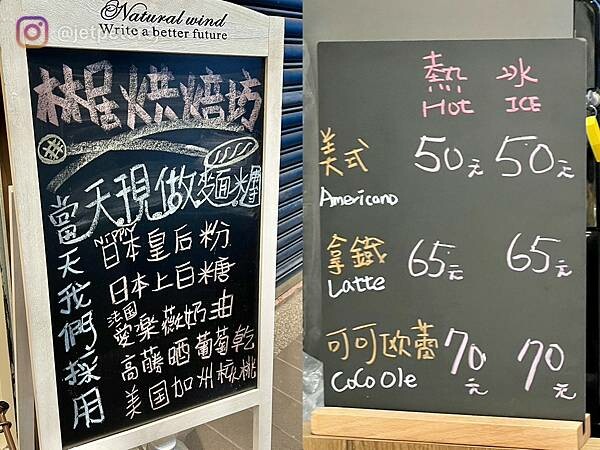 Natural wind
Write a better future
林星烘焙坊
當天現做麵糰
當天我們採用
NIPPN
日本皇后粉
日本上白糖
法国
愛樂薇奶油
高藤晒葡萄乾
美国加州核桃
熱 冰
Hot ICE
美式 50元 50元
Americano
拿鐵 65元 65元
Latte
可可欧蕾 70元 70元
CoCo Ole